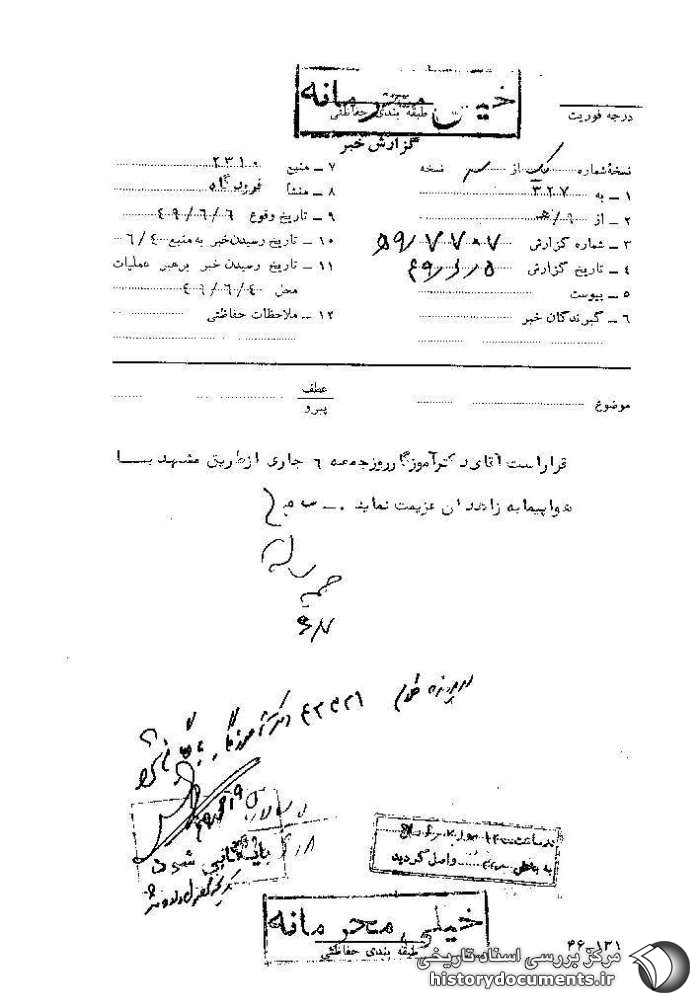 خیلی محرمانه
طبقه بندی حفاظتی
درجه فوریت
گزارش خبر
نسخهٔ شماره یک از سه نسخه
۱ – به ۳۲۷
۲ – از ۹/ه
۳ – شماره گزارش ۵۹/۷۷۰۷
۴ – تاریخ گزارش ۴۹/۶/۵
۵ – پیوست
۶ – گیرندگان خبر
۷ – منبع ۲۳۱۰
۸ – منشأ فرودگاه
۹ – تاریخ وقوع ۴۹/۶/۶
۱۰ – تاریخ رسیدن خبر به منبع ۶/۴
۱۱ – تاریخ رسیدن خبر برهبر عملیات
محل ۴۹/۶/۴
۱۲ – ملاحظات حفاظتی
موضوع
عطف
پیرو
قرار است آقای دکتر آموزگار روز جمعه ۶ جاری از طریق مشهد بــا
هواپیما به زاهدان عزیمت نماید .
در پرونده دکتر آموزگار بایگانی شود
بایگانی شد
در ساعت
به بخش واصل گردید
خیلی محرمانه
طبقه بندی حفاظتی
۴۶-۱۳۱
مرکز بررسی اسناد تاریخی
historydocuments.ir